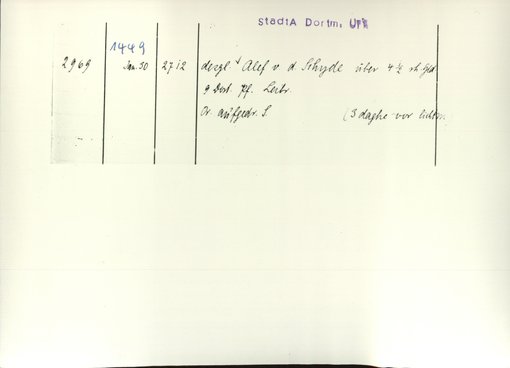 StadtA Dortm. Urk
1449
2969 Jan. 30 2712 desgl. Alef v. d. Schyde über 4 ½ rh. Gld
9 Dort. Pf. Leibr.
Or. aufgedr. S. (3 daghe vor lichtm.)